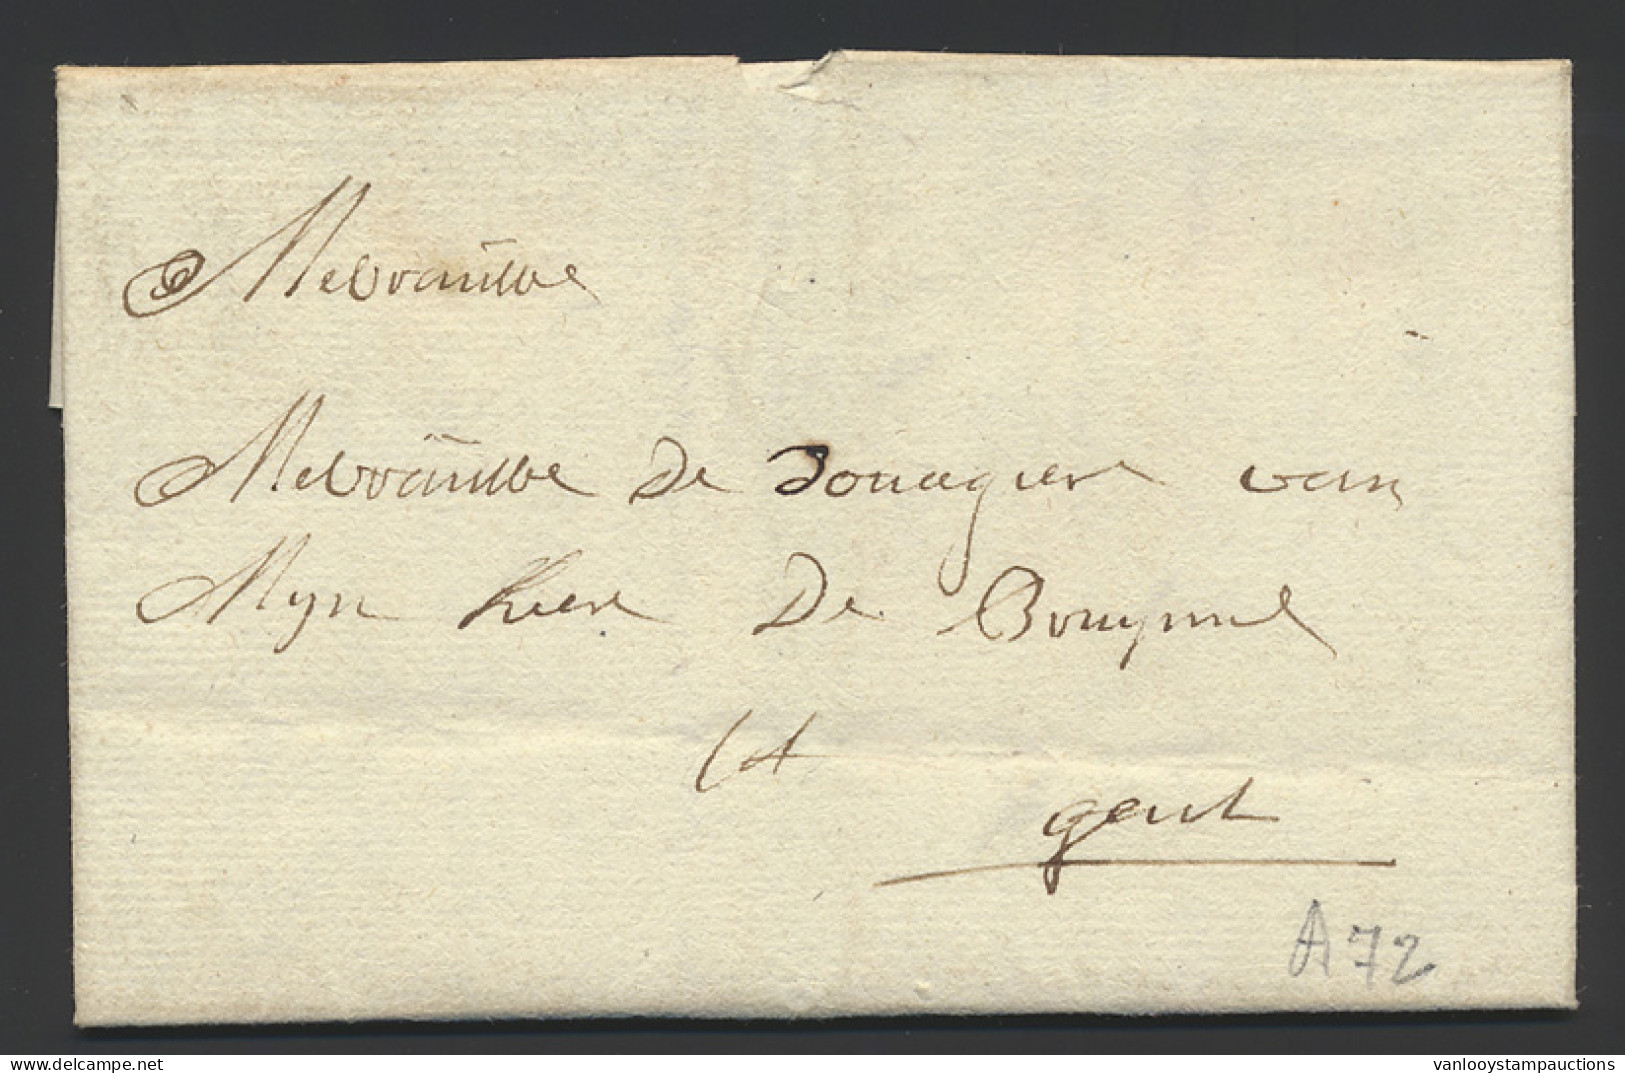 Mevrauwe
Mevrauwe De douagiere van
Mijn heer De Bruyne
tot
gent
A 72
vanlooystampauctions